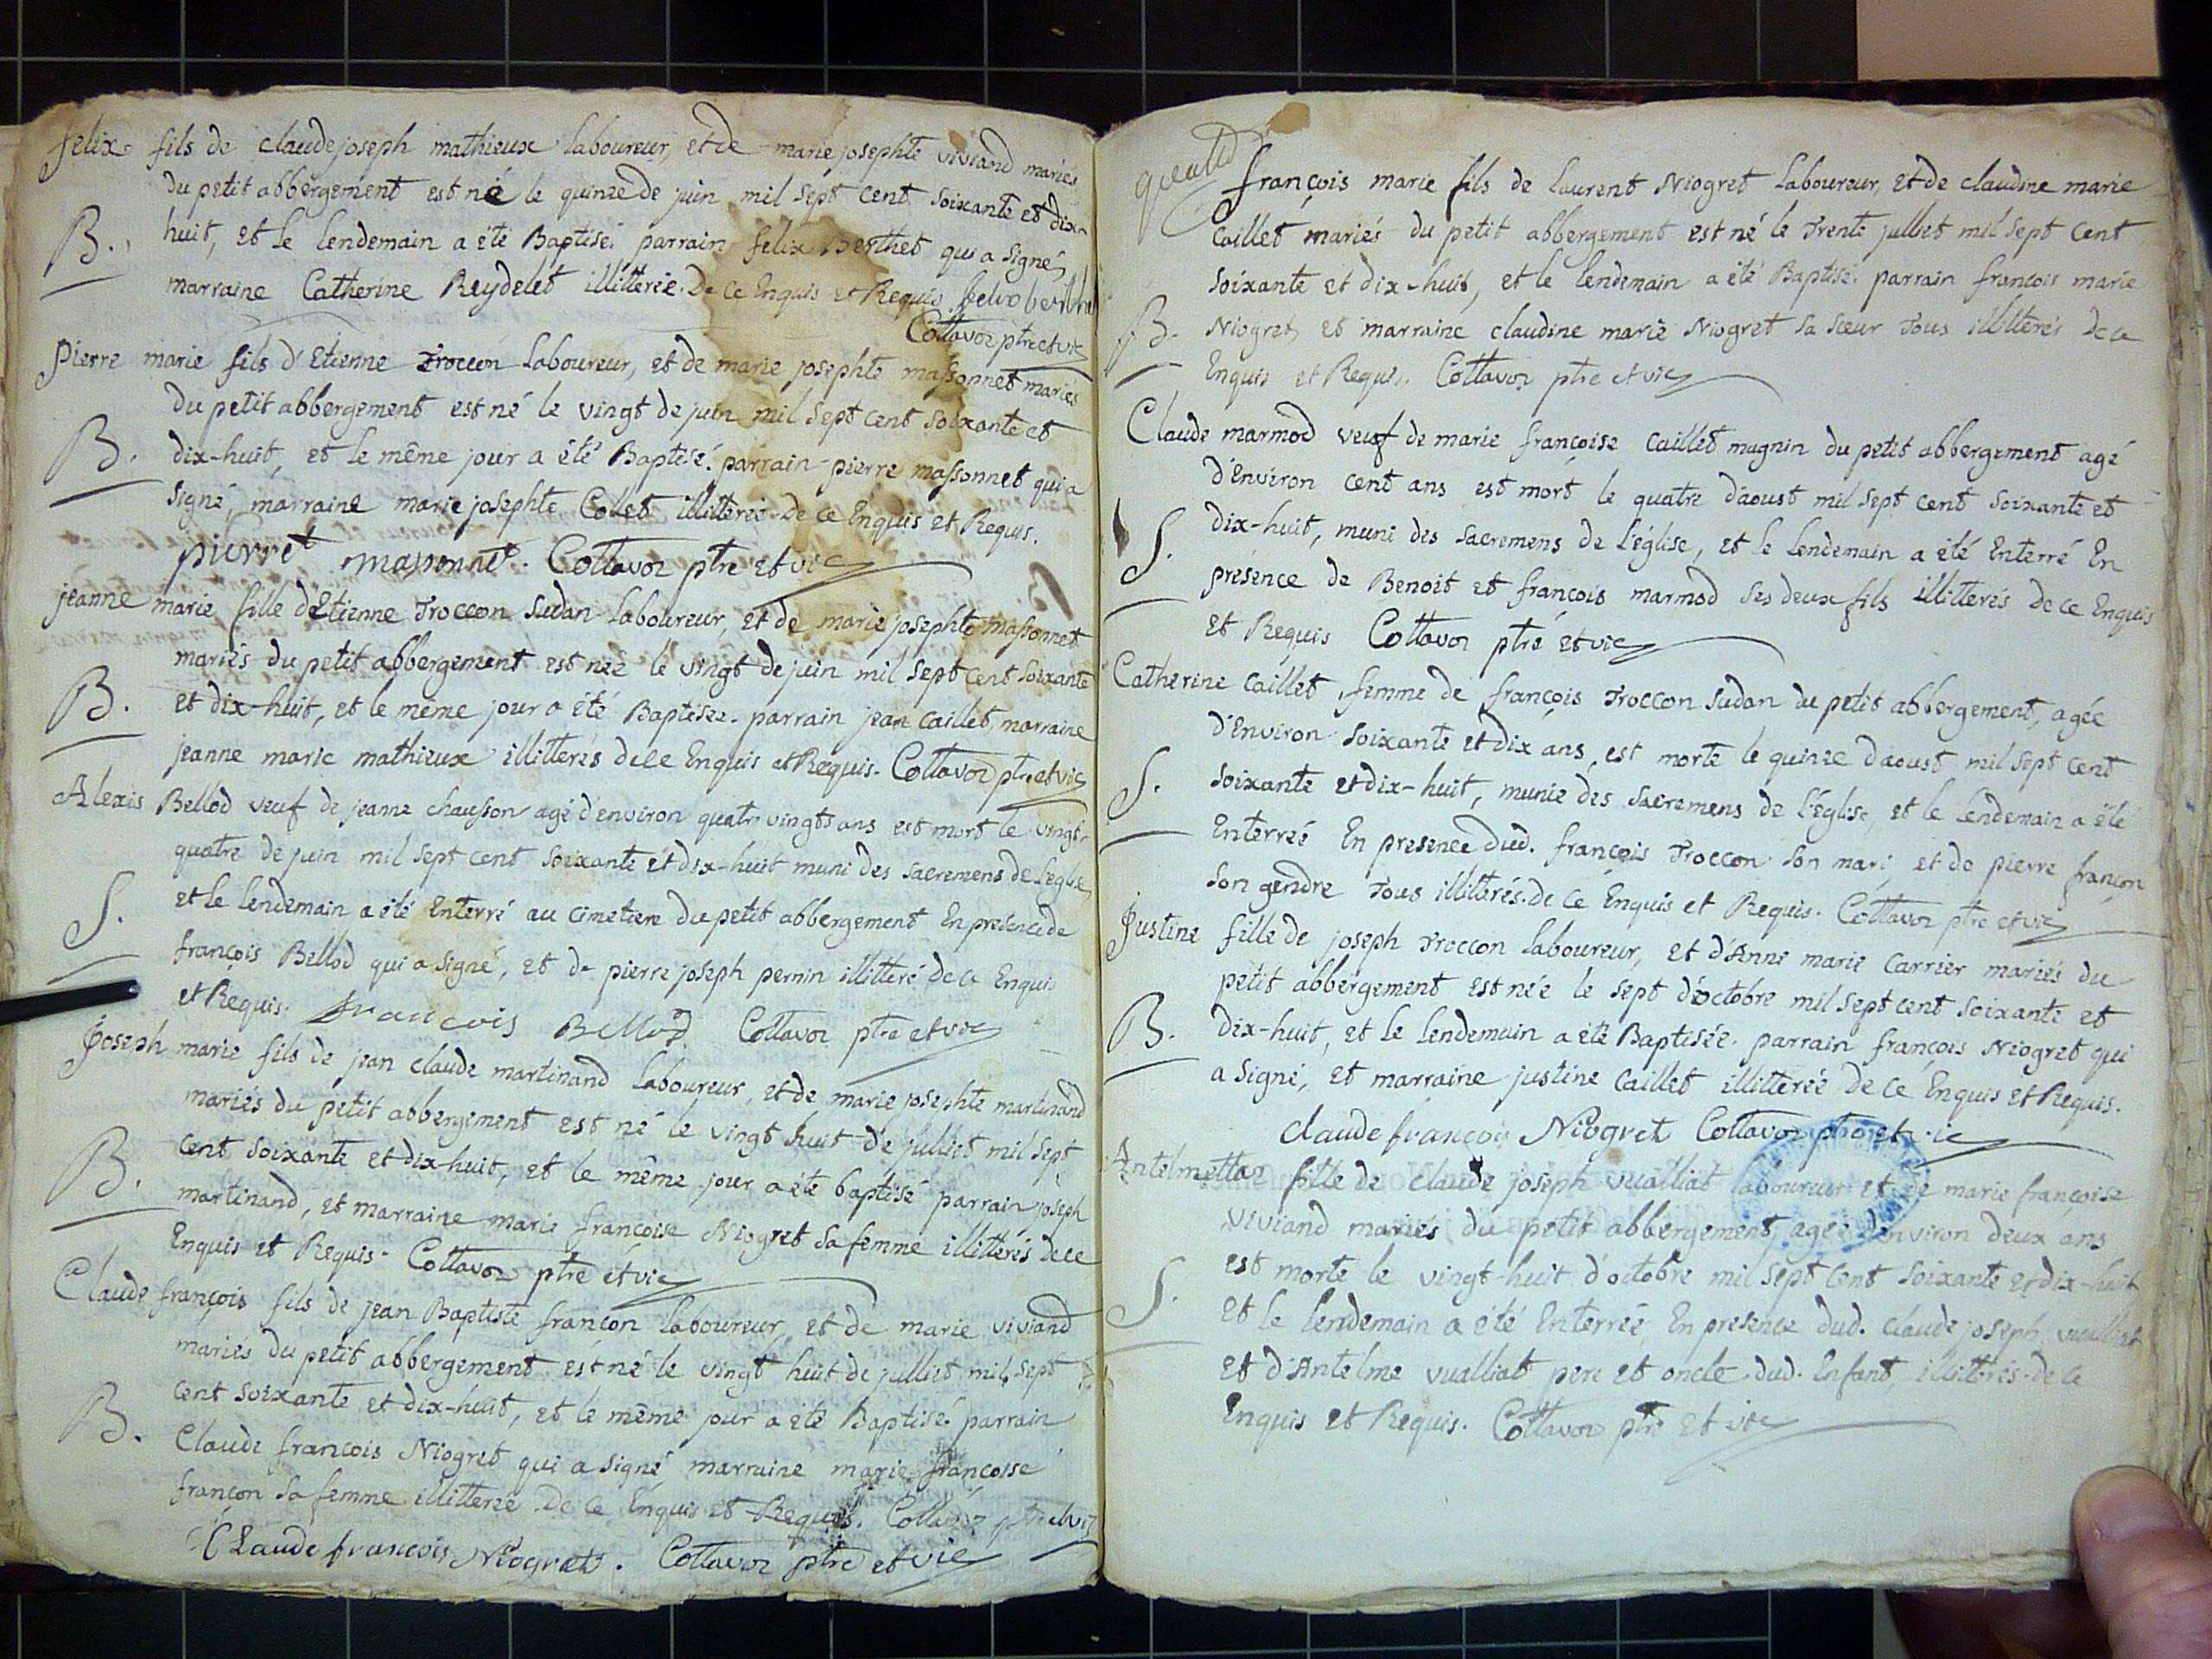 felix fils de claude joseph mathieux laboureur, et de marie josephte viviand mariés
du petit abbergement est né le quinze de juin mil sept cent soixante et dix-
B. huit, et le lendemain a été Baptisé. parrain felix Berthet qui a signé,
marraine Catherine Reydelet illitterée. De ce Enquis et Requis. felix berthet
Cottavoz ptre et vic
Pierre marie fils d'Etienne Troccon Laboureur, et de marie josephte massonnet mariés
du petit abbergement est né le vingt de juin mil sept cent soixante et
B. dix-huit, et le même jour a été Baptisé. parrain pierre massonnet qui a
signé, marraine marie josephte Colet illitterée de ce Enquis et Requis.
pierret massonnet. Cottavoz ptre et vic
jeanne marie fille d'Etienne Troccon Sudan laboureur, et de marie josephte massonnet
mariés du petit abbergement est née le vingt de juin mil sept cent soixante
B. et dix-huit, et le même jour a été Baptisée. parrain jean caillet, marraine
jeanne marie mathieux illitterés de ce Enquis et Requis. Cottavoz ptre et vic
Alexis Bellod veuf de jeanne chausson agé d'environ quatre vingts ans est mort le vingt-
quatre de juin mil sept cent soixante et dix-huit muni des sacremens de l'eglise,
S. et le lendemain a été Enterré au cimetiere du petit abbergement En presence de
françois Bellod qui a signé, et de pierre joseph pernin illitteré de ce Enquis
et Requis. francois Bellod. Cottavoz ptre et vic
Joseph marie fils de jean claude martinand laboureur, et de marie josephte martinand
mariés du petit abbergement est né le vingt huit de julliet mil sept
B. cent soixante et dix-huit, et le même jour a été baptisé parrain joseph
martinand, et marraine marie françoise Niogret sa femme illitterés de ce
Enquis et Requis. Cottavoz ptre et vic
Claude françois fils de jean Baptiste françon laboureur, et de marie viviand
mariés du petit abbergement est né le vingt huit de julliet mil sept
B. cent soixante et dix-huit, et le même jour a été Baptisé. parrain
Claude françois Niogret qui a signé marraine marie françoise
françon sa femme illitterée De ce Enquis et Requis. Cottavoz ptre et vic
Claude francois Niogret. Cottavoz ptre et vic
françois marie fils de Laurent Niogret Laboureur, et de claudine marie
Caillet mariés du petit abbergement est né le Trente julliet mil sept cent
soixante et dix-huit, et le lendemain a été Baptisé. parrain françois marie
B. Niogret, et marraine claudine marie Niogret sa sœur Tous illitterés de ce
Enquis et Requis. Cottavoz ptre et vic
Claude marmod veuf de marie françoise caillet magnin du petit abbergement agé
d'Environ cent ans est mort le quatre d'aoust mil sept cent soixante et
S. dix-huit, muni des sacremens de l'église, et le lendemain a été Enterré En
présence de Benoit et françois marmod ses deux fils illitterés de ce Enquis
et Requis Cottavoz ptre et vic
Catherine caillet, femme de françois Troccon Sudan du petit abbergement, agée
d'Environ soixante et dix ans, est morte le quinze d'aoust mil sept cent
S. soixante et dix-huit, munie des sacremens de l'église, et le lendemain a été
Enterreé En presence dud. françois Troccon son mari, et de pierre françon
son gendre Tous illitterés. de ce Enquis et Requis. Cottavoz ptre et vic
Justine fille de joseph Troccon laboureur, et d'Anne marie Carrier mariés du
petit abbergement est née le sept d'octobre mil sept cent soixante et
B. dix-huit, et le lendemain a été Baptisée. parrain françois Niogret qui
a signé, et marraine justine caillet illitterée de ce Enquis et Requis.
claude françois Niogret Cottavoz ptre et vic
Antelmettaz fille de claude joseph vualliat laboureur et de marie françoise
viviand mariés du petit abbergement, agée d'environ deux ans
est morte le vingt-huit d'octobre mil sept cent soixante et dix-huit
S. et le lendemain a été Enterreé, En presence dud. claude joseph vualliat
et d'Antelme vualliat pere et oncle dud. Enfant, illitterés. de ce
Enquis et Requis. Cottavoz ptre et vic